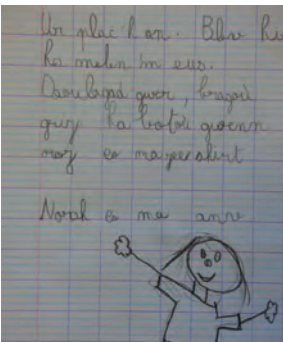 Ur plac'h on. Blev
ha melen 'm eus.
Daoulagad gwer, bragoù
ha botoù gwenn
roz eo ma
Norah eo ma anv